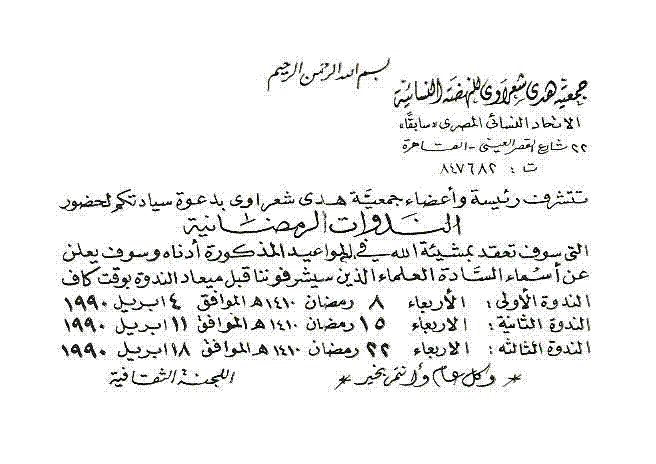 بسم الله الرحمن الرحيم
جمعية هدى شعراوى للنهضة النسائية
الاتحاد النسائى المصرى «سابقًا»
٢٢ شارع القصر العينى - القاهرة
ت : ٨٤٧٦٨٢
تتشرف رئيسة وأعضاء جمعيّة هدى شعراوى بدعوة سيادتكم لحضور
الندوات الرمضانية
التى سوف تعقد بمشيئة الله فى المواعيد المذكورة أدناه وسوف يعلن
عن أسماء السّادة العلماء الذين سيشرفوننا قبل ميعاد الندوة بوقت كاف
الندوة الأولى : الأربعاء ٨ رمضان ١٤١٠ هـ الموافق ٤ ابريل ١٩٩٠
الندوة الثانية : الاربعاء ١٥ رمضان ١٤١٠ هـ الموافق ١١ ابريل ١٩٩٠
الندوة الثالثه : الاربعاء ٢٢ رمضان ١٤١٠ هـ الموافق ١٨ ابريل ١٩٩٠
* وكل عام وأنتم بخير * اللجنة الثقافية